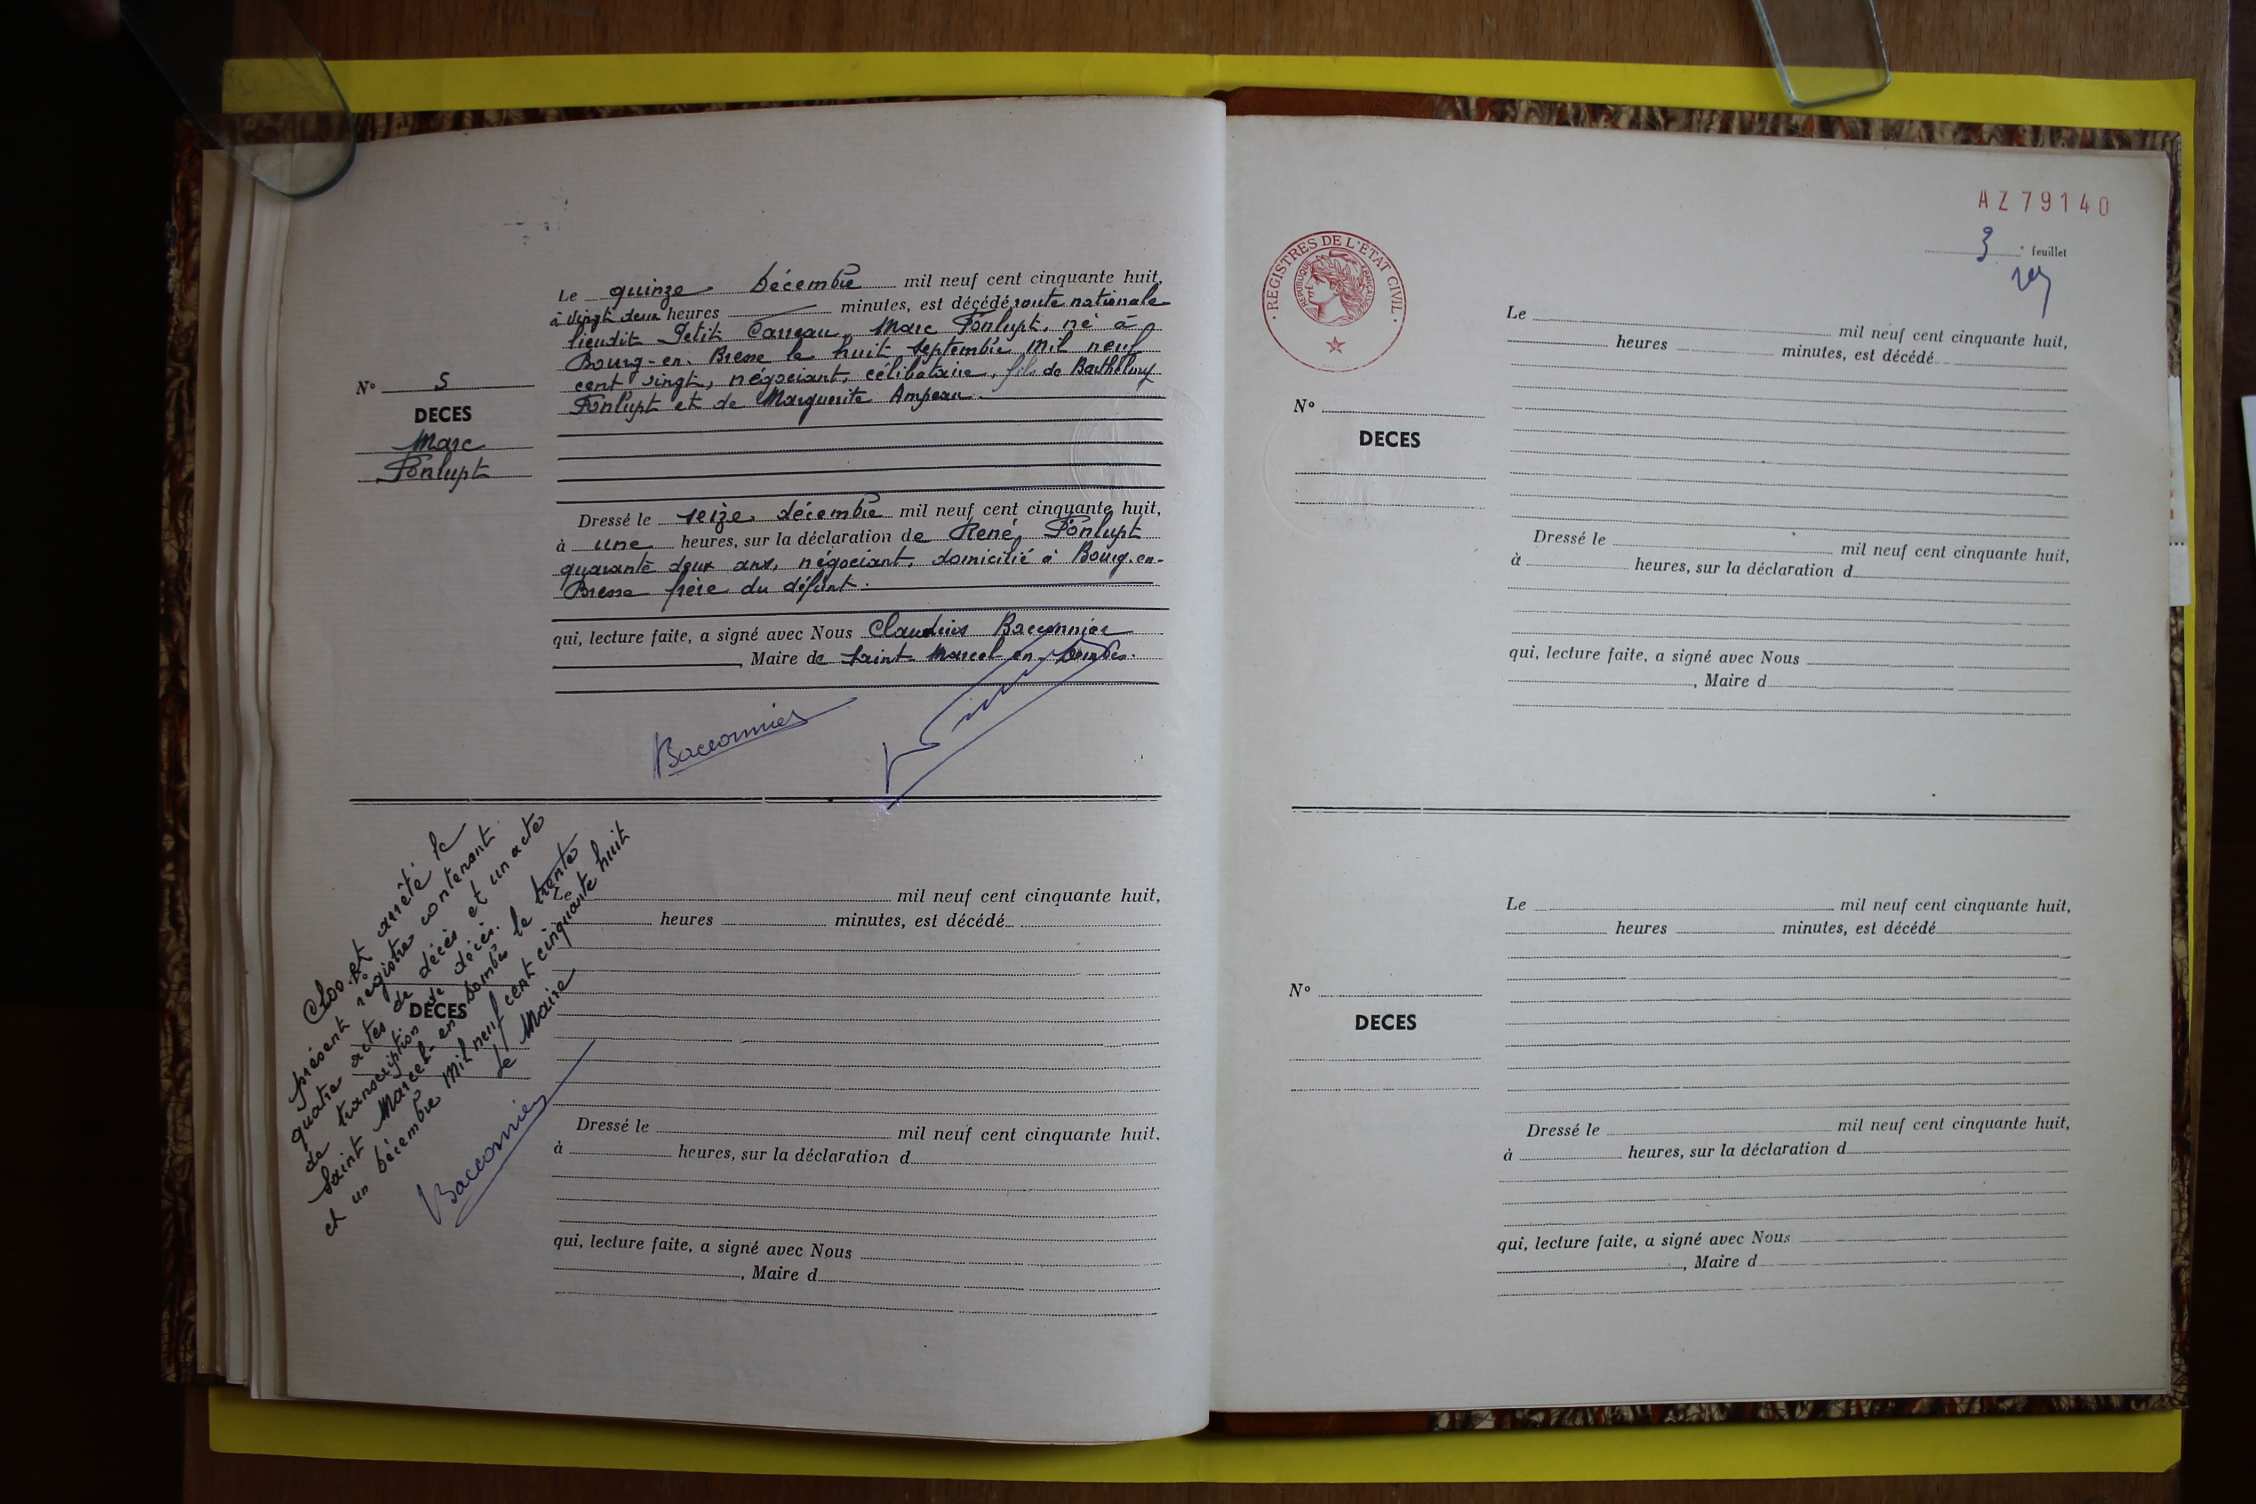 N° 5
DECES
Marc
Ponlupt
Le quinze Décembre mil neuf cent cinquante huit,
à vingt deux heures minutes, est décédé, route nationale
lieudit Petit Carreau, Marc Ponlupt, né à
Bourg-en-Bresse le huit septembre mil neuf
cent vingt, négociant, célibataire, fils de Barthélemy
Ponlupt et de Marguerite Ampeau.
Dressé le seize décembre mil neuf cent cinquante huit,
à une heures, sur la déclaration de René Ponlupt
quarante deux ans, négociant, domicilié à Bourg-en-
Bresse frère du défunt.
qui, lecture faite, a signé avec Nous Claudius Bacconnier
, Maire de Saint Marcel en Dombes.
Bacconnier
Clos et arrêté le
présent registre contenant
quatre actes de décès et un acte
de transcription de décès.
Saint Marcel-en Dombes le trente
et un Décembre mil neuf cent cinquante huit
le Maire
Bacconnier
DECES
Le mil neuf cent cinquante huit,
heures minutes, est décédé
Dressé le mil neuf cent cinquante huit,
à heures, sur la déclaration d
qui, lecture faite, a signé avec Nous
, Maire d
AZ 79140
3 e feuillet
REGISTRES DE L'ETAT CIVIL
REPUBLIQUE FRANÇAISE
N°
DECES
Le mil neuf cent cinquante huit,
heures minutes, est décédé
Dressé le mil neuf cent cinquante huit,
à heures, sur la déclaration d
qui, lecture faite, a signé avec Nous
, Maire d
N°
DECES
Le mil neuf cent cinquante huit,
heures minutes, est décédé
Dressé le mil neuf cent cinquante huit,
à heures, sur la déclaration d
qui, lecture faite, a signé avec Nous
, Maire d